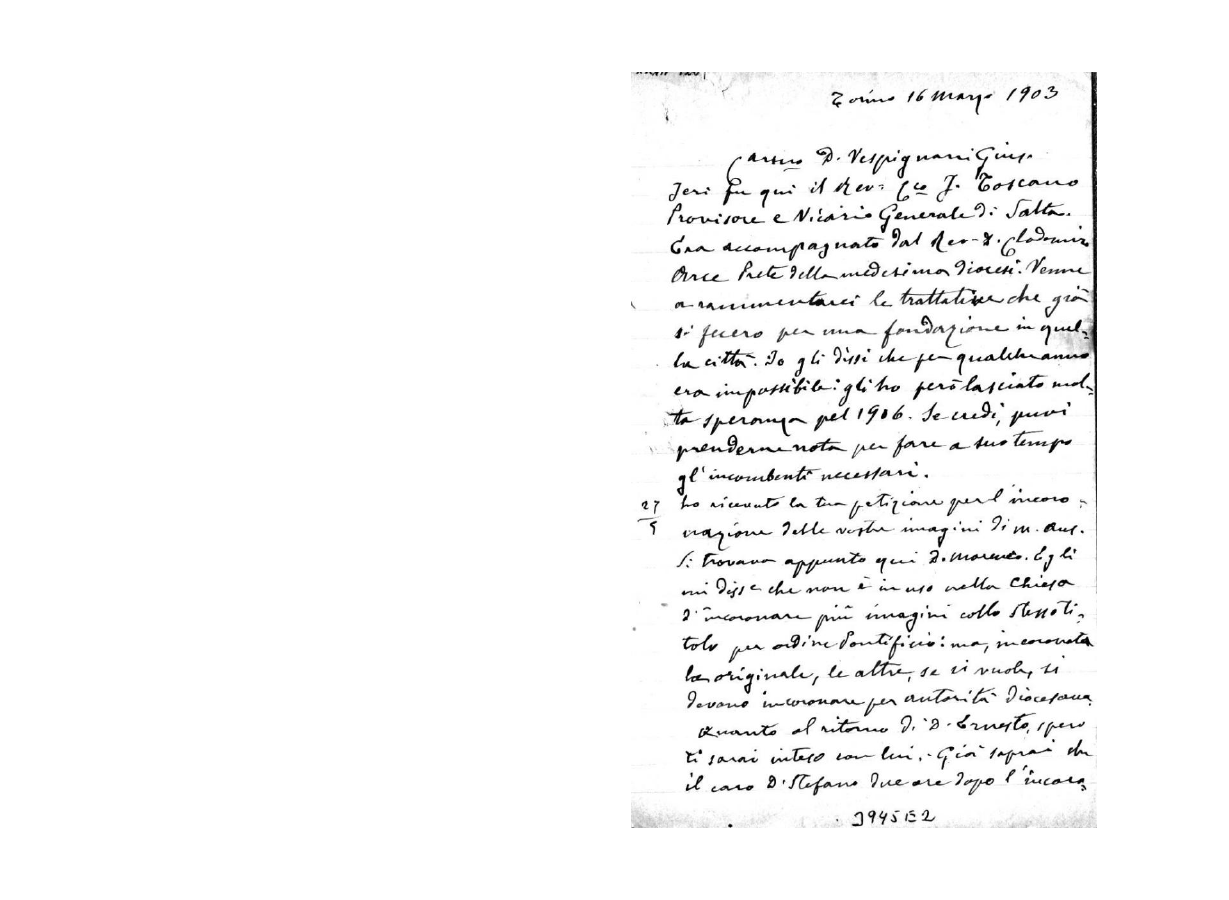 Torino 16 Marzo 1903
Carmo D. Vespignani Gius.
Jeri fu qui il Rev: Cco J. Toscano
Provisore e Vicario Generale di Salta.
Era accompagnato dal Rev- D. Clodomiro
Arce Prete della medesima diocesi. Venne
a rammentarci le trattative che già
si fecero per una fondazione in quel-
la città. Io gli dissi che per qualche anno
era impossibile: gli ho però lasciato mol-
ta speranza pel 1906. Se credi, puoi
prenderne nota per fare a suo tempo
gl'incombenti necessari.
27
5
ho ricevuto la tua petizione per l'incoro-
nazione delle vostre imagini di M. Aus.
Si trovava appunto qui D. Marenco. Egli
mi disse che non è in uso nella Chiesa
d'incoronare più imagini collo stesso ti-
tolo per ordine Pontificio: ma, incoronata
la originale, le altre, se si vuole, si
devono incoronare per autorità diocesana.
Quanto al ritorno di D. Ernesto, spero
ti sarai inteso con lui. - Già saprai che
il caro D. Stefano due ore dopo l'incoro-
3945E2